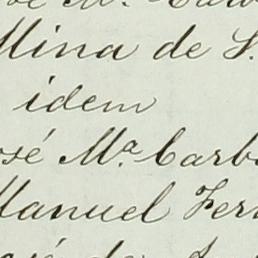 Mina de S.
idem
José Mª Carb
Manuel Fer